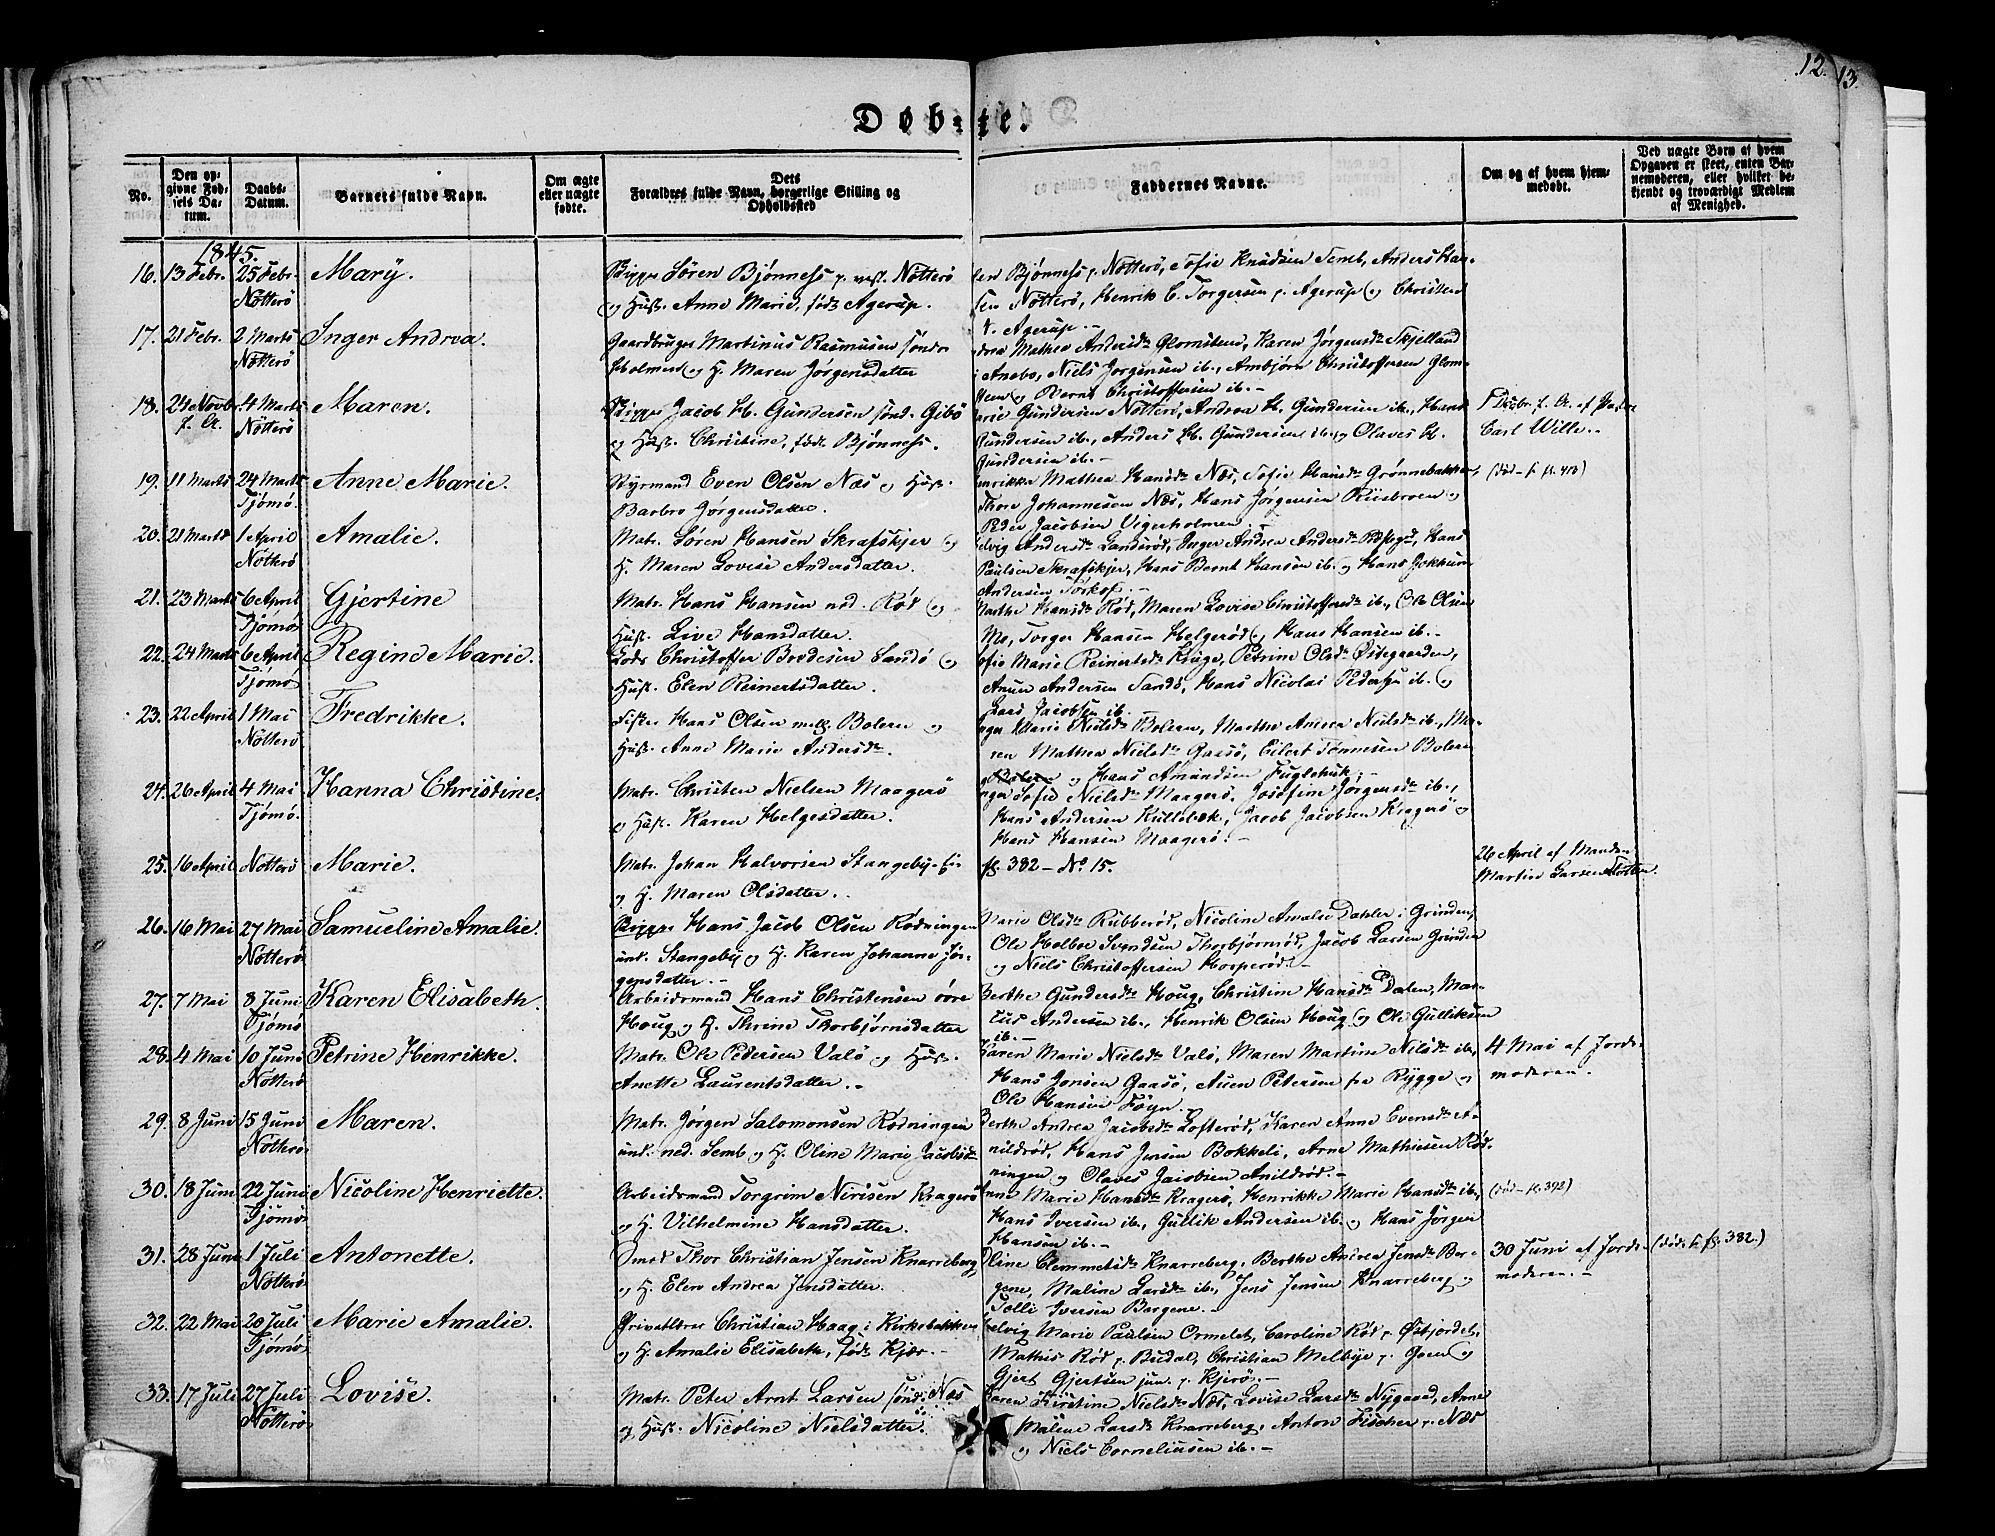 12. 13.
Døbte.
No.
Den opgivne Fødsels Datum.
Daabs-Datum.
Barnets fulde Navn.
Om ægte eller uægte fødte.
Dets Forældres fulde Navn, borgerlige Stilling og Opholdssted
Faddernes Navne.
Om og af hvem hjemmedøbt.
Ved uægte Børn af hvem Opgaven er skeet, enten Barnemoderen, eller hvilket bekjendt og troværdigt Medlem af Menighed.
1845.
16. 13 Febr. 25 Febr. Nötterö Mary. Søren Bjønness p. Nötterö
og Hust. Anne Marie, född Agerup.
Bjønness p. Nötterö, Sofie Knudsen Semb, Anders Han-
sen Nötterö, Henrik C. Torgersen p. Agerup og Christen
Agerup.-
17. 21 Febr. 2 Marts Nötterö Inger Andrea. Gaardbruger Martinus Rasmusen söndr
Holmen og H. Maren Jörgensdatter
Mathea Andersdr Glomsteen, Karen Jörgensdr Skjelland
Anebo, Niels Jörgensen ib., Ambjörn Christoffersen Glom-
steen og Bernt Christoffersen ib.-
18. 24 Novb. f. A. 4 Marts Nötterö Maren. Jacob H. Gundersen sönd. Gibö
og Hust. Christine, född Bjønness.
Gundersen Nötterö, Andrea H. Gundersen ib., Hans
Gundersen ib., Anders H. Gundersen ib. og Olaves H.
Gundersen ib.-
1 Decbr. f. A. af
Carl Wille.-
19. 11 Marts 24 Marts Tjömö. Anne Marie. Even Olsen Næs og Hust.
Barbro Jörgensdatter.
Mathea Hansdr Næs, Sofie Hansdr Grönnebakke,
Thore Johannesen Næs, Hans Jörgensen Riisbroen og
Peder Jacobsen Vigerholmen.
(död - fl. 413)
20. 21 Marts 1 April Nötterö Amalie. Matr. Sören Hansen Skrafskjer og
H. Maren Lovise Andersdatter.
Andersdr Landeröd, Inger Andrea Andersdr, Hans
Paulsen Skrafskjer, Hans Bernt Hansen ib. og Hans Jokkum
Andersen Torkop.-
21. 23 Marts 6 April Tjömö Gjertine Matr. Hans Hansen ned. Röd og
Hust. Live Hansdatter.
Marthe Hansdr Röd, Maren Lovise Christoffersdr ib., Ole Olsen
Mo, Torger Hansen Helgeröd og Hans Hansen ib.-
22. 24 Marts 6 April Tjömö Regine Marie. Lods Christoffer Brödesen Sandö og
Hust. Elen Reinertsdatter.
Sofie Marie Reinertsdr Kruge, Petrine Olsdr Östegaarden,
Andersen Sandö, Hans Nicolai Pedersen ib. og
Lars Jacobsen ib.
23. 22 April 1 Mai Nötterö Fredrikke. Hans Olsen mell. Bolern og
Hust. Anne Marie Andersdr.
Inger Marie Nielsdr Bolern, Marthe Andrea Nielsdr ib., Ma-
ren Mathea Nielsdr Gaasö, Eilert Tönnesen Bolern
og Hans Amundsen Fuglehuk.-
24. 26 April 4 Mai Tjömö. Hanna Christine. Matr. Christen Nielsen Maagerö
og Hust. Karen Helgesdatter.
Inger Sofie Nielsdr Maagerö, Josefine Jörgensdr ib.,
Hans Andersen Kullebæk, Jacob Jacobsen Kragerö og
Hans Hansen Maagerö.-
25. 16 April Nötterö Marie. Matr. Johan Halvorsen Stangeby-
og H. Maren Olsdatter.
fl. 382 - No 15.
26 April af Manden
Martin Larsen
26. 16 Mai 27 Mai Nötterö Samueline Amalie. Hans Jacob Olsen Rödningen
und. Stangeby og H. Karen Johanne Jör-
gensdatter.-
Marie Olsdr Rubberöd, Nicoline Amalie Dahler i Grinden,
Ole Holboe Svendsen Thorbjörnröd, Jacob Larsen Grinden
og Niels Christoffersen Hosperöd.-
27. 7 Mai 8 Juni Tjömö Karen Elisabeth. Arbeidsmand Hans Christensen övre
Houg og H. Thrine Thorbjörnsdatter
Berthe Gundersdr Houg, Christine Hansdr Dalen, Mar-
tus Andersen ib., Henrik Olsen Houg og Ole Gulliksen
ib.-
28. 4 Mai 10 Juni Nötterö Petrine Henrikke. Matr. Ole Pedersen Valö og Hust.
Anette Laurentsdatter.-
Karen Marie Nielsdr Valö, Maren Martine Nilsdr ib.,
Hans Jensen Gaasö, Auen Petersen fra Rygge og
Ole Hansen Föyn.
4 Mai af Jorde-
moderen.
29. 8 Juni 15 Juni Nötterö Maren. Matr. Jörgen Salomonsen Rödningen
und. ned. Semb og H. Oline Marie Jacobsdr
Berthe Andrea Jacobsdr Lofteröd, Karen Anne Evensdr A-
nildröd, Hans Jensen Bokkeli, Arne Mathiesen Röd-
ningen og Olaves Jacobsen Anildröd.-
30. 18 Juni 22 Juni Tjömö Nicoline Henriette. Arbeidsmand Torgrim Nirisen Kragerö
og H. Vilhelmine Hansdatter.
Anne Marie Hansdr Kragerö, Henrikke Marie Hansdr ib.,
Hans Iversen ib., Gullik Andersen ib. og Hans Jörgen
Hansen ib.-
(död - fl. 393)
31. 28 Juni 1 Juli Nötterö Antonette. Smed Thor Christian Jensen Knarreberg
og H. Elen Andrea Jensdatter.
Oline Clemmetsdr Knarreberg, Berthe Andrea Jensdr Ber-
gene, Maline Larsdr ib., Jens Jensen Knarreberg og
Tolli Iversen Bergene.-
30 Juni af Jorde-
moderen.-
(död fl. 382.)
32. 22 Mai 20 Juli Tjömö Marie Amalie. Privatlærer Christian Haag i Kirkebakken
og H. Amalie Elisabeth, född Kjær.-
Marie Paulsen Ormelet, Caroline Röd p. Östjordet,
Mathis Röd p. Budal, Christian Melbye p. Goen og
Gjert Gjertsen jun. p. Kjerö.-
33. 17 Juli 27 Juli Nötterö Lovise. Matr. Peter Arnt Larsen sönd. Næs
og Hust. Nicoline Nielsdatter.
Karen Kirstine Nielsdr Næs, Lovise Larsdr Nygaard, Anne
Maline Larsdr Knarreberg, Anton Fischer p. Næs
og Niels Corneliusen ib.-